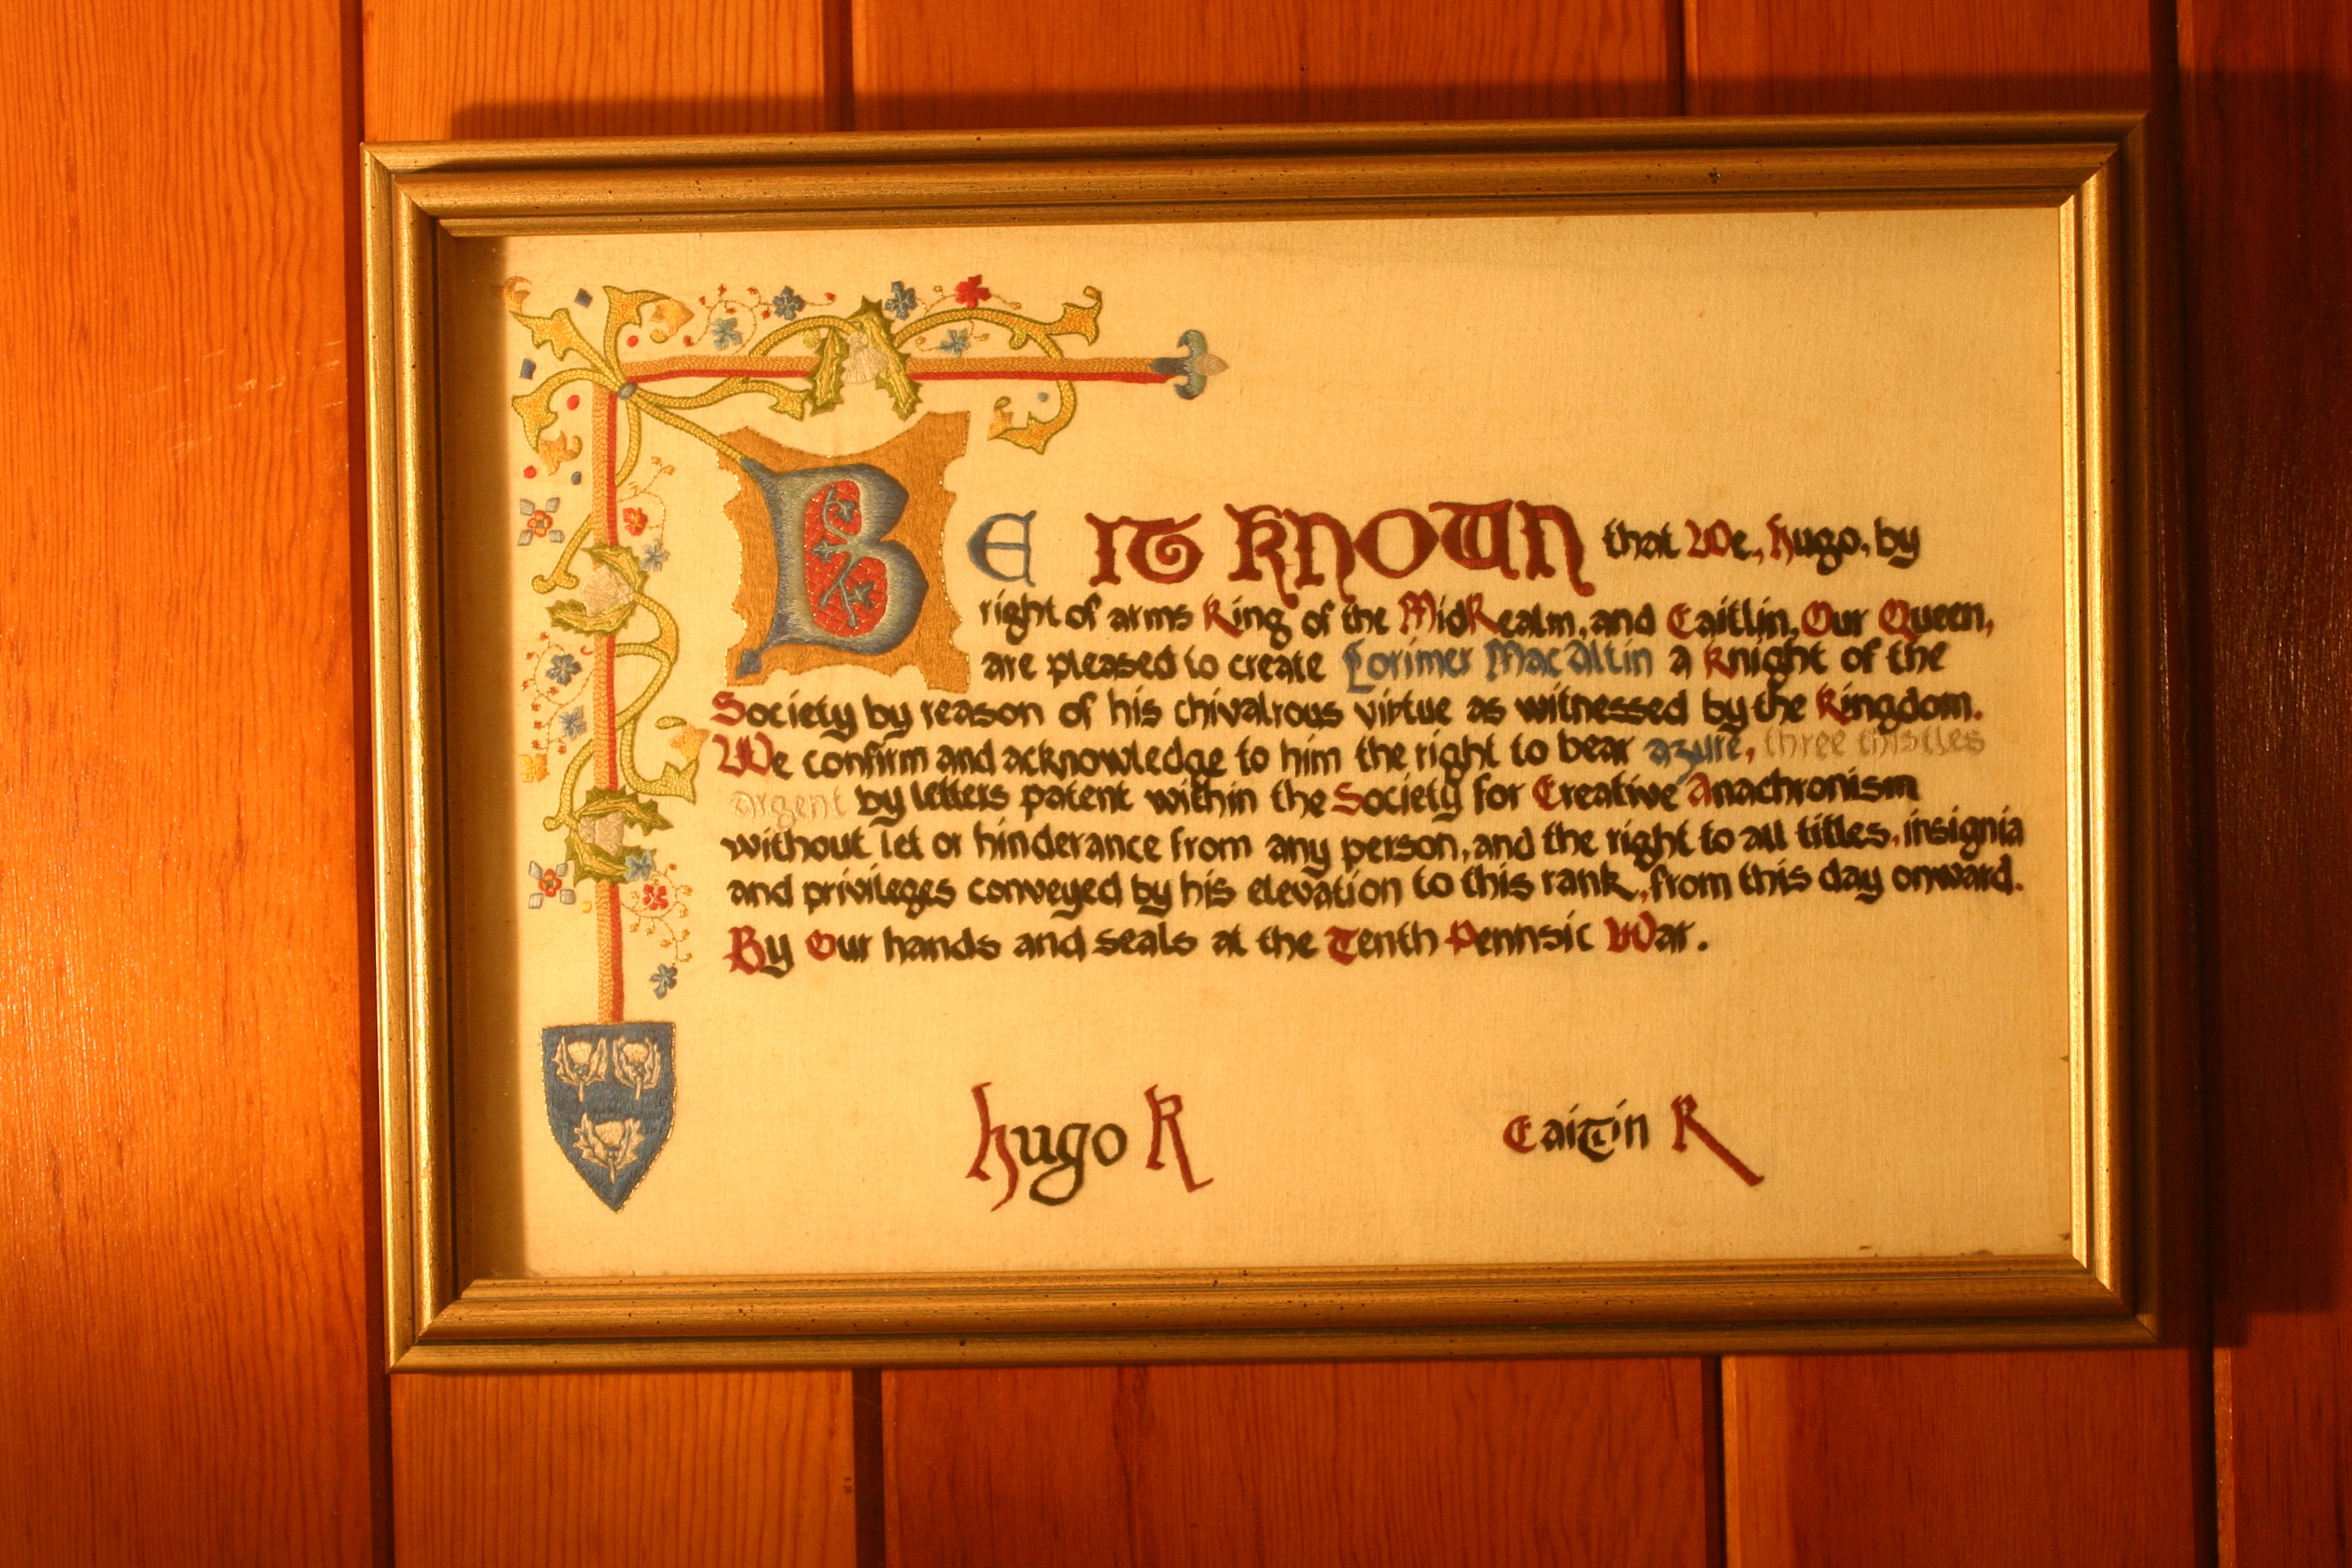 BE IT KNOWN that We, Hugo, by
right of arms King of the MidRealm, and Caitlin, Our Queen,
are pleased to create Lorimer MacAltin a Knight of the
Society by reason of his chivalrous virtue as witnessed by the Kingdom.
We confirm and acknowledge to him the right to bear azure, three thistles
argent by letters patent within the Society for Creative Anachronism
without let or hinderance from any person, and the right to all titles, insignia
and privileges conveyed by his elevation to this rank, from this day onward.
By Our hands and seals at the Tenth Pennsic War.
Hugo R
Caitlin R